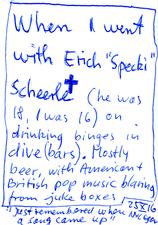 When I went
with Erich "Specki"
Scheerle (he was
18, I was 16) on
drinking binges in
dive (bars). Mostly
beer, with American +
British pop music blaring
from juke boxes
25 X 16
"just remembered when
a song came up"